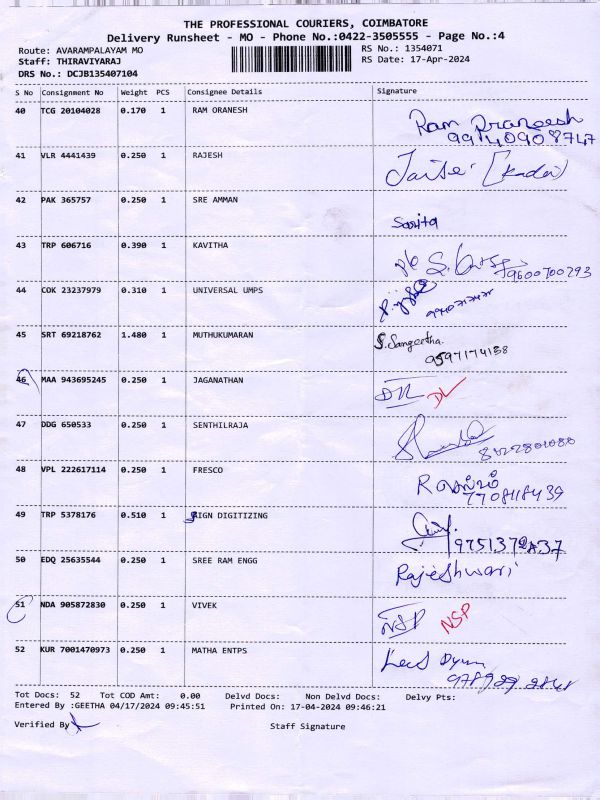 THE PROFESSIONAL COURIERS, COIMBATORE
Delivery Runsheet - MO - Phone No.:0422-3505555 - Page No.:4
Route: AVARAMPALAYAM MO RS No.: 1354071
Staff: THIRAVIYARAJ RS Date: 17-Apr-2024
DRS No.: DCJB135407104
S No Consignment No Weight PCS Consignee Details Signature
40 TCG 20104028 0.170 1 RAM ORANESH Ram Praneesh
9940908747
41 VLR 4441439 0.250 1 RAJESH
42 PAK 365757 0.250 1 SRE AMMAN Sarita
43 TRP 606716 0.390 1 KAVITHA
9600700293
44 COK 23237979 0.310 1 UNIVERSAL UMPS
45 SRT 69218762 1.480 1 MUTHUKUMARAN S. Sangeetha.
9597174138
46 MAA 943695245 0.250 1 JAGANATHAN DL DL
47 DDG 650533 0.250 1 SENTHILRAJA
48 VPL 222617114 0.250 1 FRESCO
7708118439
49 TRP 5378176 0.510 1 SIGN DIGITIZING
50 EDQ 25635544 0.250 1 SREE RAM ENGG Rajeshwari
51 NDA 905872830 0.250 1 VIVEK NSP NSP
52 KUR 7001470973 0.250 1 MATHA ENTPS
Tot Docs: 52 Tot COD Amt: 0.00 Delvd Docs: Non Delvd Docs: Delvy Pts:
Entered By :GEETHA 04/17/2024 09:45:51 Printed On: 17-04-2024 09:46:21
Verified By Staff Signature